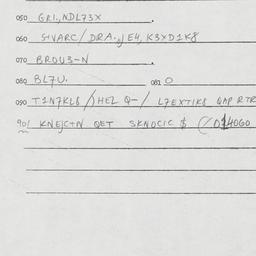 050 GRI.,NDL73X
060 SIVARC/DRA.,JE4, K3XD1K8
070 BROU3-N
080 BL7U. 081 O
090 T1N7KL8/)HEL Q-/ L7EXTIK8 QAP RTR
901 KNEJC+N QET SKNOCIC $